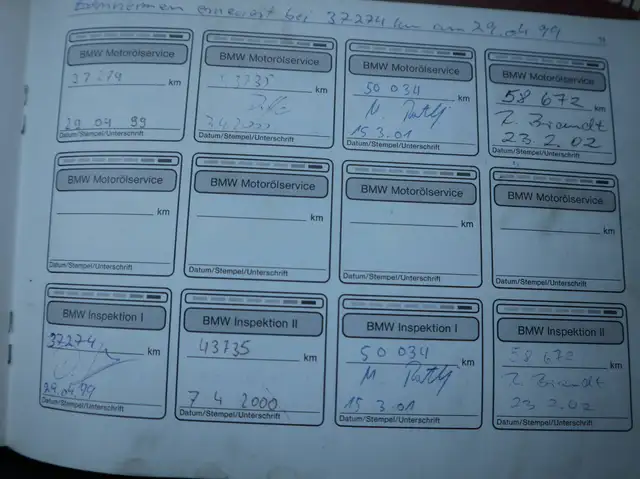 erneuert bei 37274 km am 29.04.99
BMW Motorölservice
37 279 km
29 04 99
Datum/Stempel/Unterschrift
BMW Motorölservice
3735 km
Datum/Stempel/Unterschrift
BMW Motorölservice
50 034 km
15 3.01
Datum/Stempel/Unterschrift
BMW Motorölservice
58 672 km
23.2.02
Datum/Stempel/Unterschrift
BMW Motorölservice
km
Datum/Stempel/Unterschrift
BMW Motorölservice
km
Datum/Stempel/Unterschrift
BMW Motorölservice
km
Datum/Stempel/Unterschrift
BMW Motorölservice
km
Datum/Stempel/Unterschrift
BMW Inspektion I
37274 km
29.04.99
Datum/Stempel/Unterschrift
BMW Inspektion II
43735 km
7 4 2000
Datum/Stempel/Unterschrift
BMW Inspektion I
50 034 km
15 3.01
Datum/Stempel/Unterschrift
BMW Inspektion II
58 672 km
23 2.02
Datum/Stempel/Unterschrift